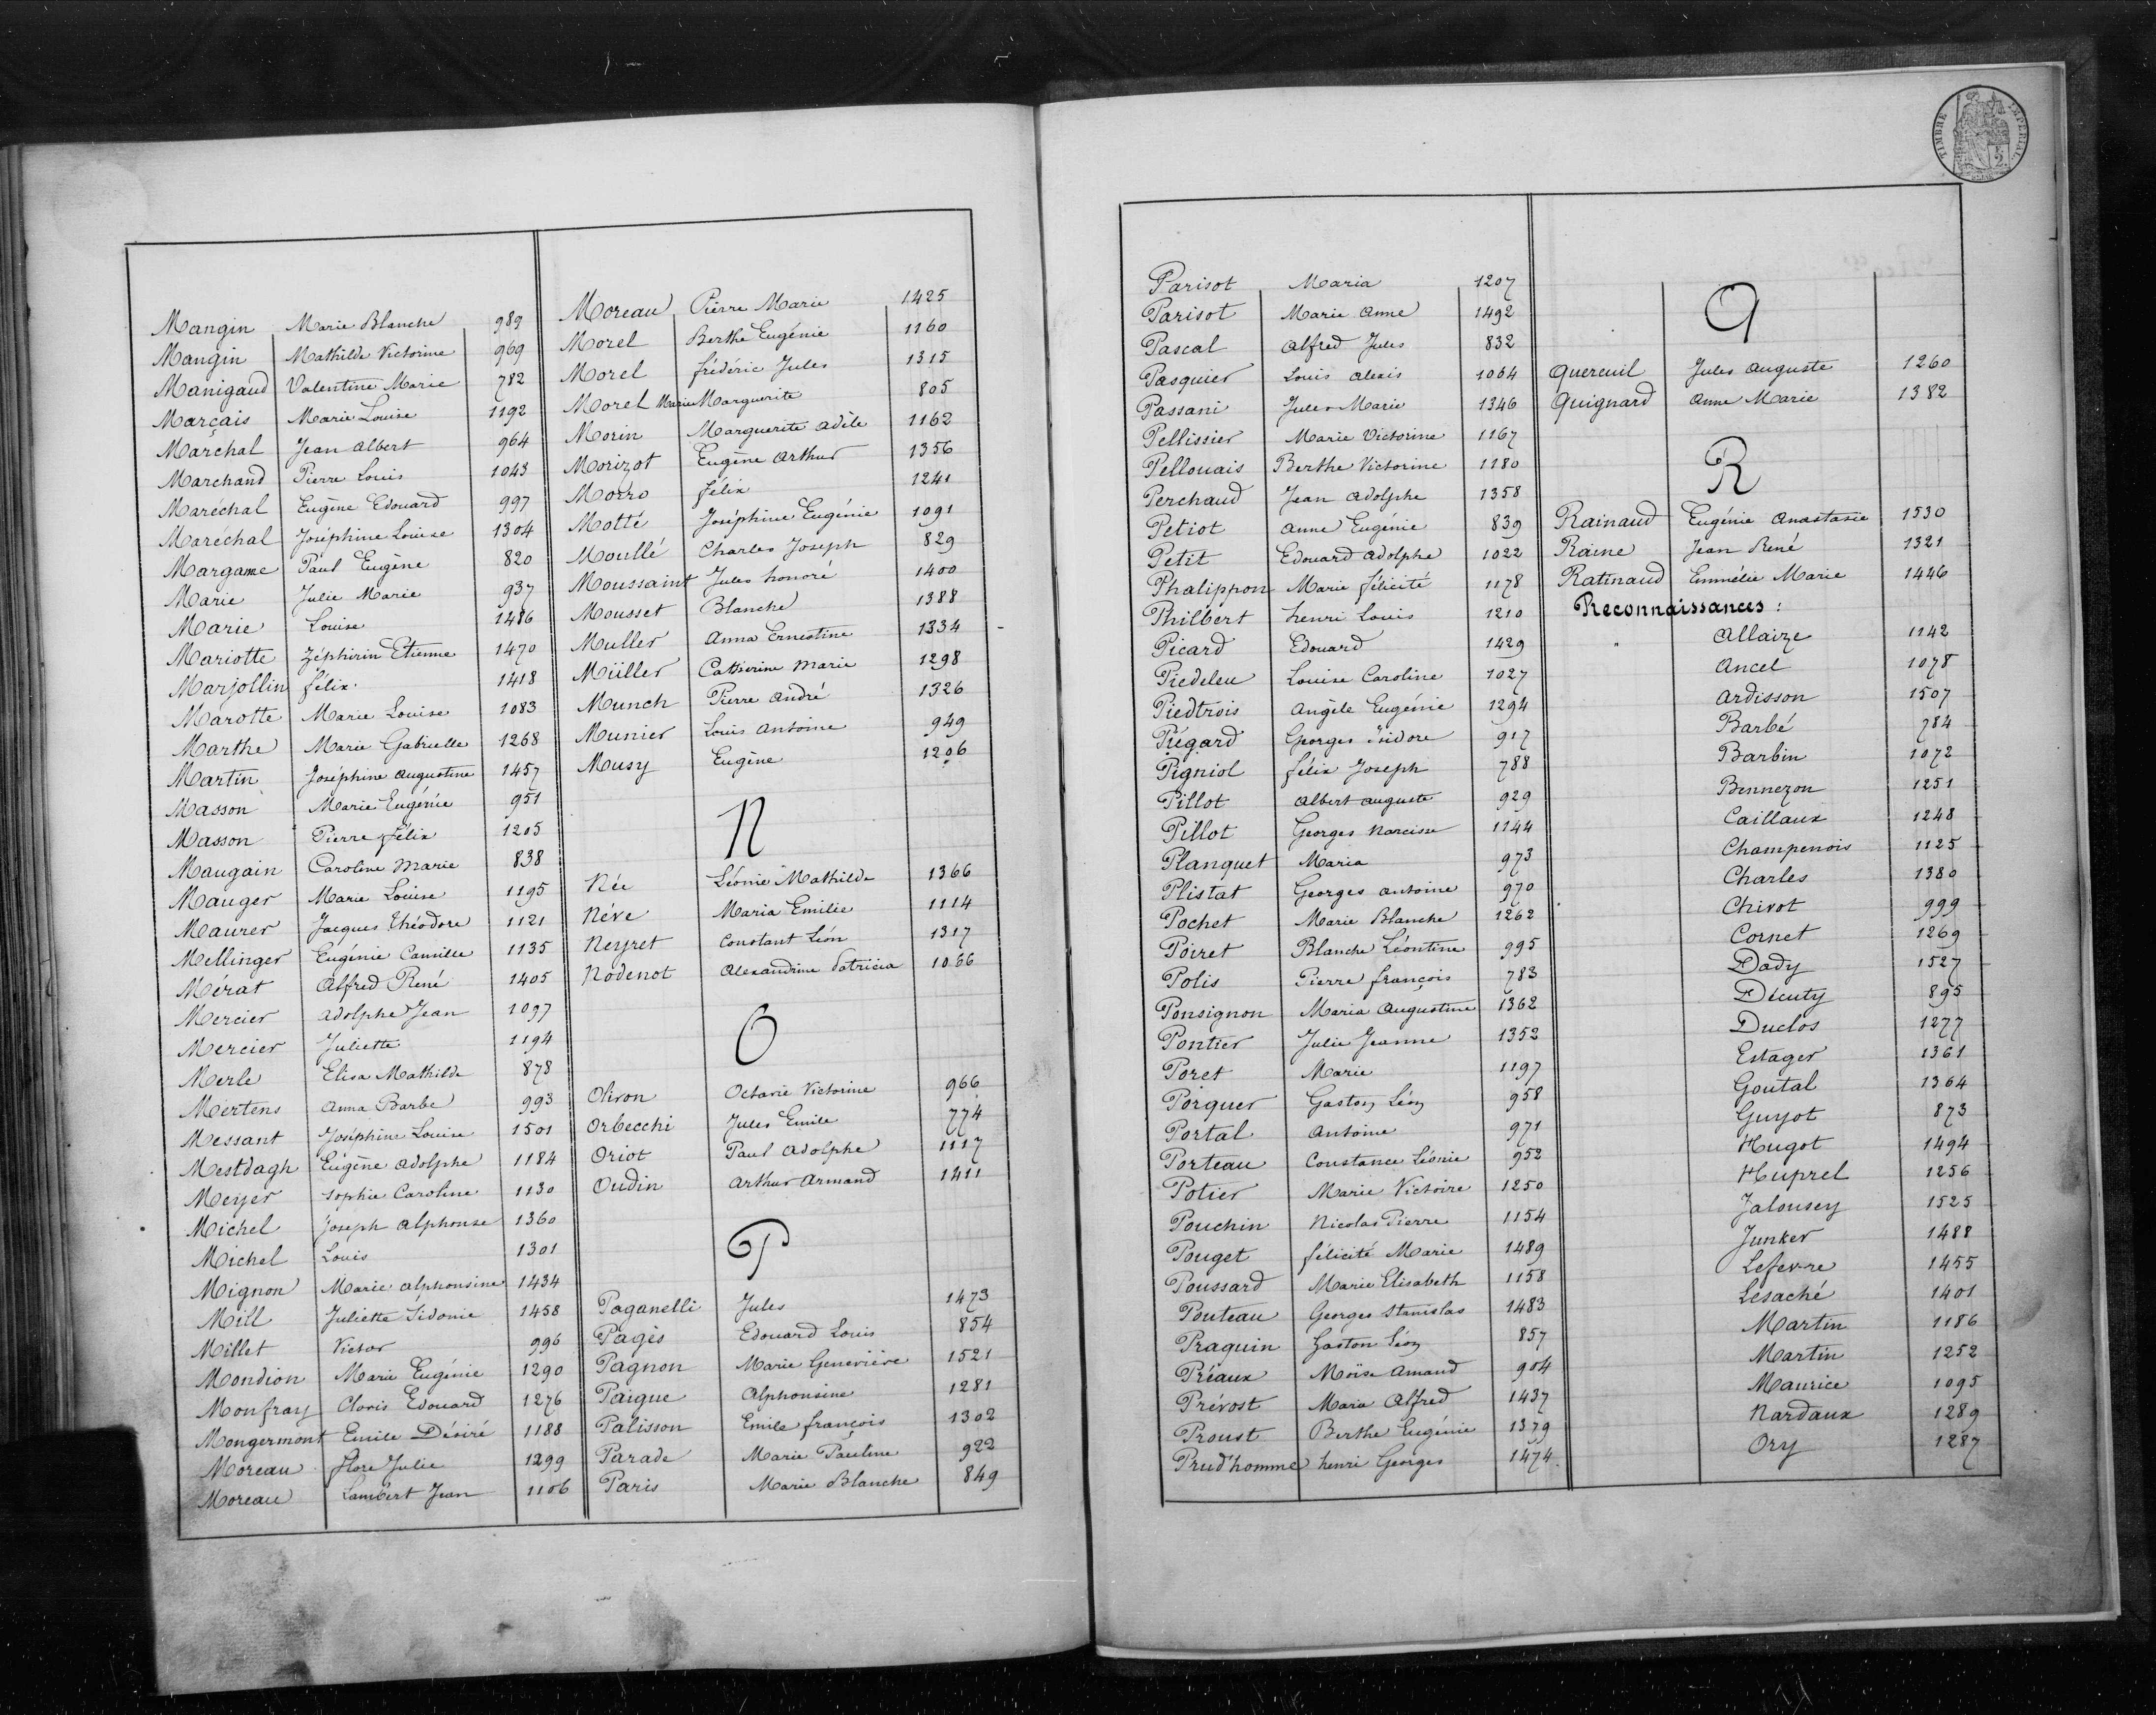 Mangin Marie Blanche 989
Mangin Mathilde Victorine 969
Manigaud Valentine Marie 782
Marçais Marie Louise 1192
Marchal Jean Albert 964
Marchand Pierre Louis 1043
Maréchal Eugène Edouard 997
Maréchal Joséphine Louise 1304
Margame Paul Eugène 820
Marie Julie Marie 937
Marie Louise 1486
Mariotte Zéphirin Etienne 1470
Marjollin félix 1418
Marotte Marie Louise 1083
Marthe Marie Gabrielle 1268
Martin Joséphine Augustine 1457
Masson Marie Eugénie 951
Masson Pierre félix 1205
Maugain Caroline Marie 838
Mauger Marie Louise 1195
Maurer Jacques Théodore 1121
Mellinger Eugénie Camille 1135
Mérat Alfred René 1405
Mercier Adolphe Jean 1097
Mercier Juliette 1194
Merle Elisa Mathilde 878
Mertens Anna Barbe 993
Messant Joséphine Louise 1501
Mestdagh Eugène Adolphe 1184
Meyer Sophie Caroline 1130
Michel Joseph Alphonse 1360
Michel Louis 1301
Mignon Marie Alphonsine 1434
Mill Juliette Sidonie 1458
Millet Victor 996
Mondion Marie Eugénie 1290
Monfray Clovis Edouard 1276
Mongermont Emile Désiré 1188
Moreau flore Julie 1299
Moreau Lambert Jean 1106
Moreau Pierre Marie 1425
Morel Berthe Eugénie 1160
Morel frédéric Jules 1315
Morel Marie Marguerite 805
Morin Marguerite Adèle 1162
Morizot Eugène Arthur 1356
Morro félix 1241
Motté Joséphine Eugénie 1091
Moullé Charles Joseph 829
Moussaint Jules honoré 1400
Mousset Blanche 1388
Muller Anna Ernestine 1334
Müller Catherine Marie 1298
Munch Pierre André 1326
Munier Louis Antoine 949
Musy Eugène 1206
N
Née Léonie Mathilde 1366
Néve Maria Emilie 1114
Neyret Constant Léon 1317
Nodenot Alexandrine Patricia 1066
O
Oliron Octavie Victorine 966
Orbecchi Jules Emile 774
Oriot Paul Adolphe 1117
Oudin Arthur Armand 1411
P
Paganelli Jules 1473
Pagès Edouard Louis 854
Pagnon Marie Geneviève 1521
Paigue Alphonsine 1281
Palisson Emile françois 1302
Parade Marie Pauline 922
Paris Marie Blanche 849
TIMBRE IMPÉRIAL
Parisot Maria 1207
Parisot Marie Anne 1492
Pascal Alfred Jules 832
Pasquier Louis Alexis 1064
Passani Jules Marie 1346
Pellissier Marie Victorine 1167
Pellouais Berthe Victorine 1180
Perchaud Jean Adolphe 1358
Petiot Anne Eugénie 839
Petit Edouard Adolphe 1022
Phalippon Marie félicité 1178
Philbert henri Louis 1210
Picard Edouard 1429
Piedeleu Louise Caroline 1027
Piedtrois Angèle Eugénie 1294
Piégard Georges Isidore 917
Pigniol félix Joseph 788
Pillot Albert Auguste 929
Pillot Georges Narcisse 1144
Planquet Maria 973
Plistat Georges Antoine 970
Pochet Marie Blanche 1262
Poiret Blanche Léontine 995
Polis Pierre françois 783
Ponsignon Maria Augustine 1362
Pontier Julie Jeanne 1352
Poret Marie 1197
Porquer Gaston Léon 958
Portal Antoine 971
Porteau Constance Léonie 952
Potier Marie Victoire 1250
Pouchin Nicolas Pierre 1154
Pouget félicité Marie 1489
Poussard Marie Elisabeth 1158
Pouteau Georges Stanislas 1483
Praquin Gaston Léon 857
Préaux Moïse Amand 904
Prévost Marie Alfred 1437
Proust Berthe Eugénie 1379
Prud'homme henri Georges 1474
Q
Quereuil Jules Auguste 1260
Quignard Anne Marie 1382
R
Rainaud Eugénie Anastasie 1530
Raine Jean René 1321
Ratinaud Emmélie Marie 1446
Reconnaissances :
Allaize 1142
Ancel 1078
Ardisson 1507
Barbé 784
Barbin 1072
Bennezon 1251
Caillaux 1248
Champenois 1125
Charles 1380
Chivot 999
Cornet 1269
Dady 1527
Décuty 895
Duclos 1277
Estager 1361
Goutal 1364
Guyot 873
Hugot 1494
Huprel 1256
Jalousey 1525
Junker 1488
Lefevre 1455
Lesaché 1401
Martin 1186
Martin 1252
Maurice 1095
Nardaux 1289
Ory 1287